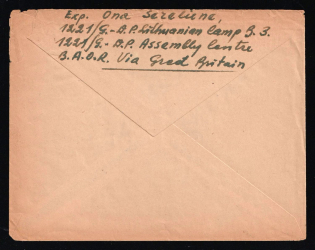 Exp. Ona Sereliene,
1221/G.-D.P. Lithuanian Camp B. 3.
1221/G.- D.P. Assembly Centre
B.A.O.R. Via Gread Britain